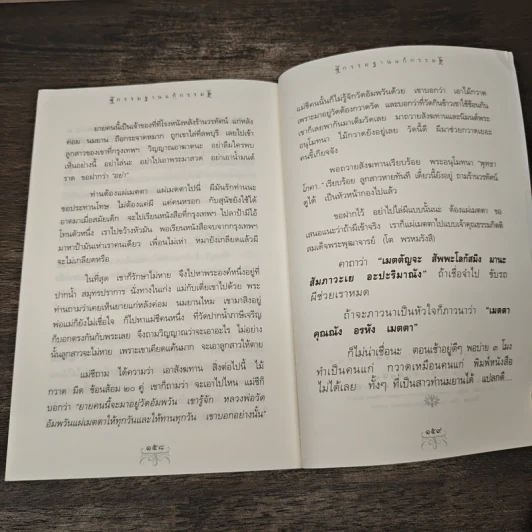 กรรมฐานแก้กรรม
ยายคนนี้เป็นเจ้าของที่ดีโรงหนังหลังร้านวรทัศน์ แก่หลัง
ค่อม นมยาน ถือกระจาดหมาก ลูกเขาใส่ที่ลพบุรี เลยไปเข้า
ลูกสาวของเขาที่กรุงเทพฯ วิญญาณอาฆาตนะ อย่าลืมใครพบ
เห็นอย่างนี้ อย่าไล่นะ อย่าไปเอาพระมาสวด อย่าเอาน้ำมนต์
ราด ขอฝากว่า "อย่า"
ท่านต้องแผ่เมตตา แผ่เมตตาไปนี่ ผีมันรักท่านนะ
ขอประทานโทษ ไม่ต้องแค่ผี แค่คนหรอก กับสุนัขยังใช้ได้
อาตมาเมื่อสมัยเด็ก จะไปเรียนหนังสือที่กรุงเทพฯ ไปลาป้ามีไอ้
โทนตัวหนึ่ง เราไปขว้างหัวมัน พอเรียนหนังสือจบจากกรุงเทพฯ
มาหาป้ามันเห่าเราคนเดียว เพื่อนไม่เห่า หมายังเกลียดแล้วผี
จะไม่เกลียดหรือ
ในที่สุด เขาก็รักษาไม่หาย จึงไปหาพระองค์หนึ่งอยู่ที่
ปากน้ำ สมุทรปราการ นั่งทางในเก่ง แม่กับเตี่ยเขาไปด้วย พระ
ท่านถามว่าเคยเห็นยายแก่หลังค่อม นมยานไหม เขามาสิงอยู่
พ่อแม่ก็ยังไม่เชื่อใจ ก็ไปหาแม่ชีคนหนึ่ง ที่วัดปากน้ำภาษีเจริญ
ก็บอกตรงกันกับพระเลย จึงถามวิญญาณว่าจะเอาอะไร ไม่อย่าง
นั้นลูกสาวจะไม่หาย เพราะเขาเคียดแค้นมาก จะเอาลูกสาวให้ตาย
แม่ชีถาม ได้ความว่า เอาสังฆทาน สิ่งต่อไปนี้ ไม้
กวาด มีด ช้อนส้อม ๒๐ คู่ เขาก็ถามว่า จะเอาไปไหน แม่ชีก็
บอกว่า "ยายคนนี้จะมาอยู่วัดอัมพวัน เขารู้จัก หลวงพ่อวัด
อัมพวันแผ่เมตตาให้ทุกวันและให้ทานทุกวัน เขาบอกอย่างนั้น"
๑๕๘
กรรมฐานแก้กรรม
แม่ชีคนนั้นก็ไม่รู้จักวัดอัมพวันด้วย เขาบอกว่า เอาไม้กวาด
เพราะมาอยู่วัดต้องกวาดวัด และบอกว่าที่วัดกินข้าวเขาใช้ช้อนกัน
เขาก็เลยพากันมาเต็มวัดเลย มาถวายสังฆทานและนิมนต์พระ
อนุโมทนา ไม้กวาดยังอยู่เลย วัดนี้ดี ผีมาช่วยกวาดเยอะ
คนขี้เกียจจัง
พอถวายสังฆทานเรียบร้อย พระอนุโมทนา "ยุททา
โภคา.." เรียบร้อย ลูกสาวหายทันที เดี๋ยวนี้ยังอยู่ ถามร้านวรทัศน์
ดูได้ เป็นหัวหน้ากองไปแล้ว
ขอฝากไว้ อย่าไปไล่ผีแบบนั้นนะ ต้องแผ่เมตตา ขอ
เสนอแนะว่าถ้ามีผีเข้าจริง เราก็แผ่เมตตาไปแบบเจ้าคุณธรรมกิตติ
สมเด็จพระพุฒาจารย์ (โต พรหมรังสี)
คาถาว่า "เมตตัญจะ สัพพะโลกัสมิง มานะ
สัมภาวะเย อะปะริมาณัง" ถ้าเชื่อจำไป ขับรถ
ผีช่วยเราหมด
ถ้าจะภาวนาเป็นหัวใจก็ภาวนาว่า "เมตตา
คุณณัง อรหัง เมตตา"
ก็ไม่น่าเชื่อนะ ตอนเช้าอยู่ดีๆ พอบ่าย ๓ โมง
ทำเป็นคนแก่ กวาดเหมือนคนแก่ พิมพ์หนังสือ
ไม่ได้เลย ทั้งๆ ที่เป็นสาวทำนมยานได้ แปลกดี
๑๕๙